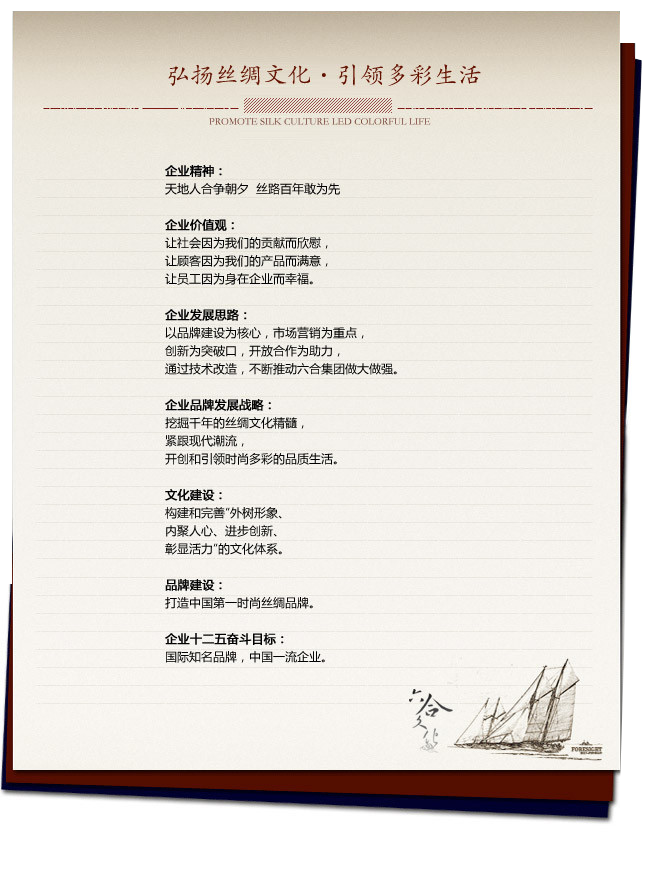 弘扬丝绸文化·引领多彩生活
PROMOTE SILK CULTURE LED COLORFUL LIFE
企业精神：
天地人合争朝夕 丝路百年敢为先
企业价值观：
让社会因为我们的贡献而欣慰，
让顾客因为我们的产品而满意，
让员工因为身在企业而幸福。
企业发展思路：
以品牌建设为核心，市场营销为重点，
创新为突破口，开放合作为助力，
通过技术改造，不断推动六合集团做大做强。
企业品牌发展战略：
挖掘千年的丝绸文化精髓，
紧跟现代潮流，
开创和引领时尚多彩的品质生活。
文化建设：
构建和完善“外树形象、
内聚人心、进步创新、
彰显活力”的文化体系。
品牌建设：
打造中国第一时尚丝绸品牌。
企业十二五奋斗目标：
国际知名品牌，中国一流企业。
六合文化
FORESIGHT